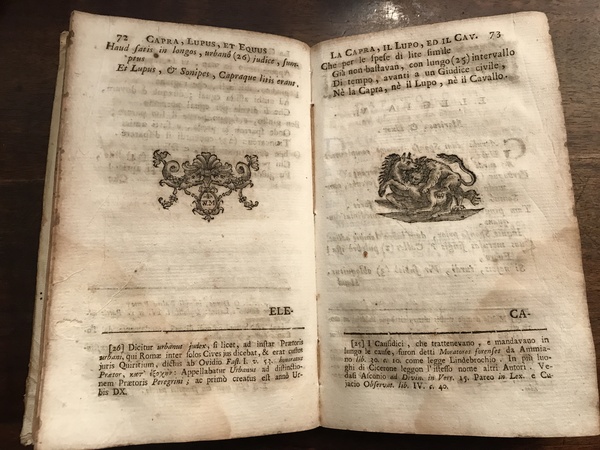 72 CAPRA, LUPUS, ET EQUUS
Haud satis in longos, urbanô (26) judice, sum-
ptus
Et Lupus, & Sonipes, Capraque litis erant.
ELE-
[26] Dicitur urbanus judex, si licet, ad instar Prætoris
urbani, qui Romæ inter solos Cives jus dicebat, & erat custos
juris Quiritium, dictus ab Ovidio Fast. l. 1. v. 53.
Prætor, κατ' ἐξοχήν: Appellabatur Urbanus ad distinctio-
nem Prætoris Peregrini; ac primò creatus est anno Ur-
bis DX.
LA CAPRA, IL LUPO, ED IL CAV. 73
Che per le spese di lite simile
Già non bastavan, con lungo (25) intervallo
Di tempo, avanti a un Giudice civile,
Nè la Capra, nè il Lupo, nè il Cavallo.
CA-
[25] I Causidici, che trattenevano, e mandavano in
lungo le cause, furon detti Moratores forenses da Ammia-
no lib. 30. c. 10. come legge Lindebrochio. In tsli luo-
ghi di Cicerone leggon l'istesso nome altri Autori. Ve-
dasi Asconio ad Divin. in Verr. 15. Pareo in Lex. e Cu-
jacio Observat. lib. IV. c. 40.